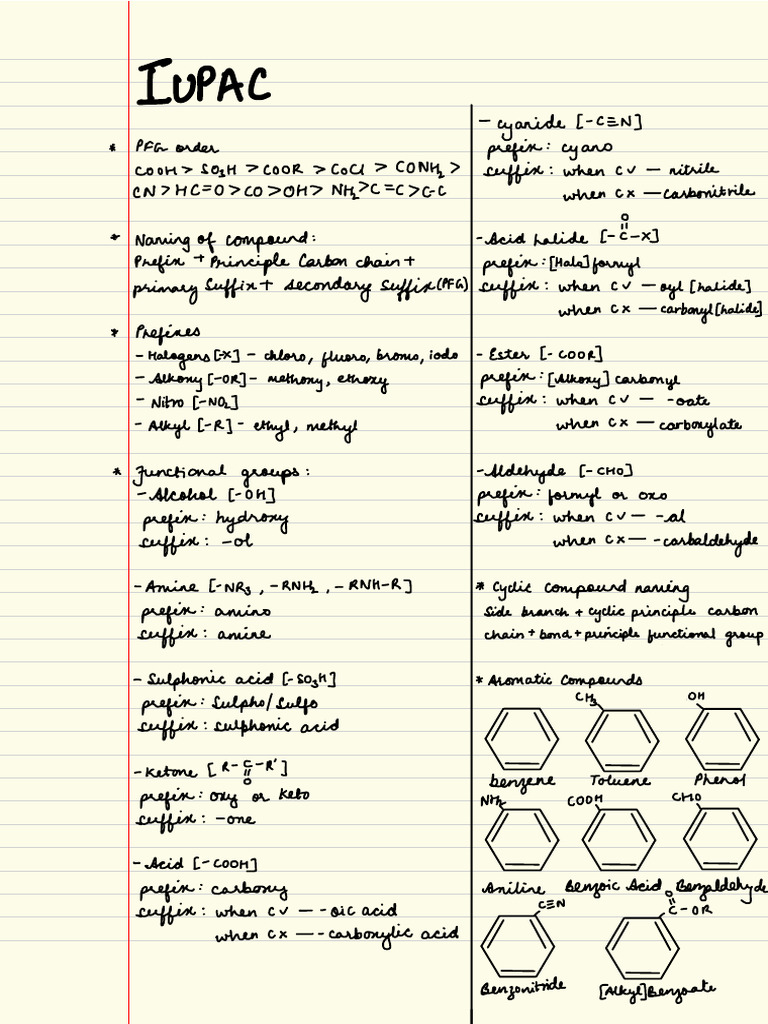 IUPAC
* PFG order
COOH > SO₃H > COOR > COCl > CONH₂ >
CN > HC=O > CO > OH > NH₂ > C=C > C-C
* Naming of compound:
Prefix + Principle Carbon chain +
primary suffix + secondary suffix (PFG)
* Prefixes
- Halogens [-X] - chloro, fluoro, bromo, iodo
- Alkony [-OR] - methoxy, ethoxy
- Nitro [-NO₂]
- Alkyl [-R] - ethyl, methyl
* Functional groups:
- Alcohol [-OH]
prefix: hydroxy
suffix: -ol
- Amine [-NR₃, -RNH₂, -RNH-R]
prefix: amino
suffix: amine
- Sulphonic acid [-SO₃H]
prefix: Sulpho/Sulfo
suffix: sulphonic acid
- Ketone [R-C-R']
=
O
prefix: oxy or keto
suffix: -one
- Acid [-COOH]
prefix: carboxy
suffix: when C✓ — -oic acid
when C× — -carboxylic acid
- cyanide [-C≡N]
prefix: cyano
suffix: when C✓ — nitrile
when C× — carbonitrile
O
=
- Acid halide [-C-X]
prefix: [Halo] formyl
suffix: when C✓ — oyl [halide]
when C× — carbonyl [halide]
- Ester [-COOR]
prefix: [Alkoxy] carbonyl
suffix: when C✓ — -oate
when C× — carboxylate
- Aldehyde [-CHO]
prefix: formyl or oxo
suffix: when C✓ — -al
when C× — -carbaldehyde
* Cyclic compound naming
Side branch + cyclic principle carbon
chain + bond + principle functional group
* Aromatic Compounds
CH₃ OH
benzene Toluene Phenol
NH₂ COOH CHO
Aniline Benzoic Acid Benzaldehyde
C≡N
O
=
C-OR
Benzonitride [Alkyl] Benzoate